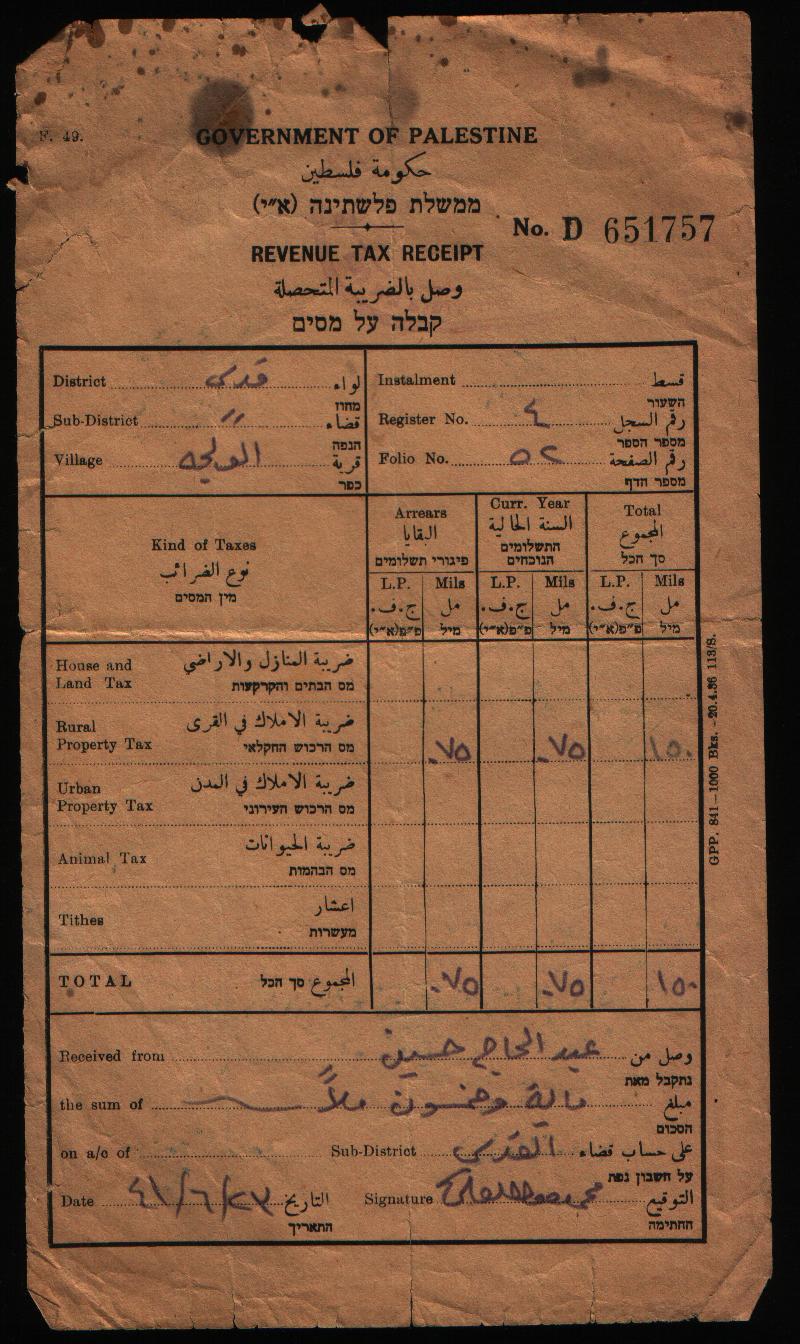 F. 49.
GOVERNMENT OF PALESTINE
حكومة فلسطين
ממשלת פלשתינה (א״י)
No. D 651757
REVENUE TAX RECEIPT
وصل بالضريبة المتحصلة
קבלה על מסים
District قدس لواء
מחוז
Sub-District " قضاء
הנפה
Village الولجه قرية
כפר
Instalment قسط
השעור
Register No. ٤ رقم السجل
מספר הספר
Folio No. ٥٢ رقم الصفحة
מספר הדף
Kind of Taxes
نوع الضرائب
מין המסים
Arrears
البقايا
פיגורי תשלומים
Curr. Year
السنة الحالية
התשלומים
הנוכחים
Total
المجموع
סך הכל
L.P. Mils L.P. Mils L.P. Mils
ج.ف. مل ج.ف. مل ج.ف. مل
פ״פ(א״י) מיל פ״פ(א״י) מיל פ״פ(א״י) מיל
House and ضريبة المنازل والاراضي
Land Tax מס הבתים והקרקעות
Rural ضريبة الاملاك في القرى
Property Tax מס הרכוש החקלאי ٠٧٥ ٠٧٥ ١٥٠
Urban ضريبة الاملاك في المدن
Property Tax מס הרכוש העירוני
Animal Tax ضريبة الحيوانات
מס הבהמות
Tithes اعشار
מעשרות
TOTAL המجموع סך הכל ٠٧٥ ٠٧٥ ١٥٠
Received from عبد الحاج حسين وصل من
נתקבל מאת
the sum of ماية وخمسون ملاً مبلغ
הסכום
on a/c of Sub-District القدس على حساب قضاء
על חשבון נפת
Date ٤١/٦/٢٣ التاريخ Signature التوقيع
התאריך החתימה
GPP. 841—1000 Bks.—20.4.36 113/S.